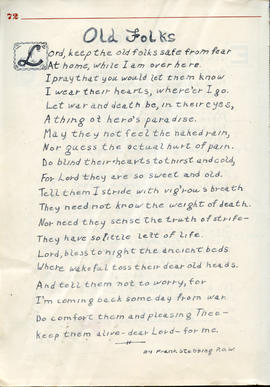 72
Old Folks
Lord, keep the old folks safe from fear
At home, while I am over here.
I pray that you would let them know
I wear their hearts, where'er I go.
Let war and death be, in their eyes,
A thing of hero's paradise.
May they not feel the naked rain,
Nor guess the actual hurt of pain.
Do blind their hearts to thirst and cold,
For Lord they are so sweet and old.
Tell them I stride with vig'rous breath
They need not know the weight of death.
Nor need they sense the truth of strife—
They have so little left of life.
Lord, bless to night the ancient beds
Where wakeful toss their dear old heads.
And tell them not to worry, for
I'm coming back some day from war.
Do comfort them and pleasing Thee—
keep them alive—dear Lord—for me.
By Frank Stebbing P.O.W.